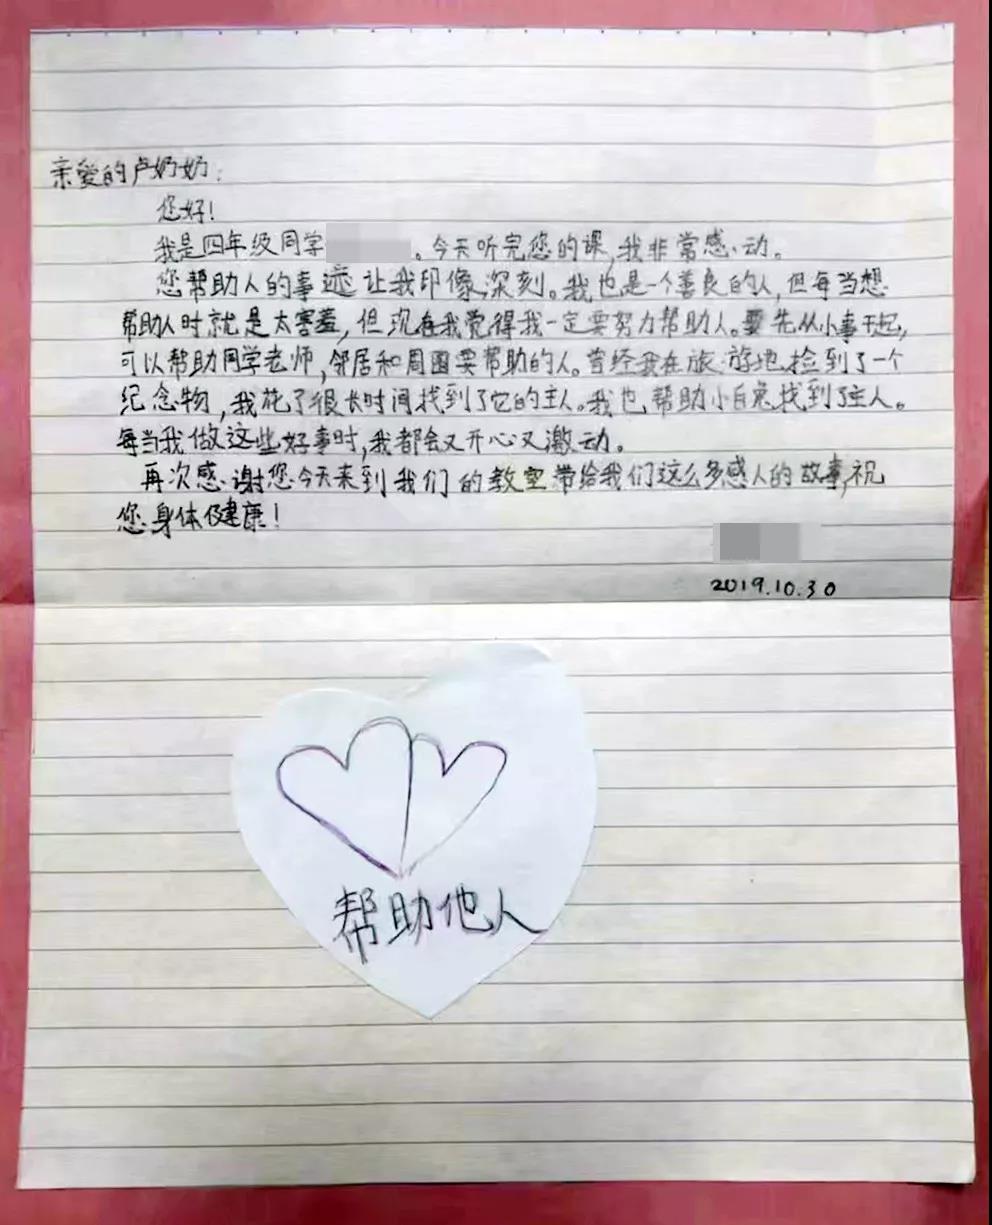 亲爱的卢奶奶：
您好！
我是四年级同学。今天听完您的课，我非常感动。
您帮助人的事迹让我印像深刻。我也是一个善良的人，但每当想
帮助人时就是太害羞，但现在我觉得我一定要努力帮助人。要先从小事干起，
可以帮助同学老师，邻居和周围要帮助的人。曾经我在旅游地捡到了一个
纪念物，我花了很长时间找到了它的主人。我也帮助小白兔找到了主人。
每当我做这些好事时，我都会又开心又激动。
再次感谢您今天来到我们的教室带给我们这么多感人的故事，祝
您身体健康！
2019.10.30
帮助他人